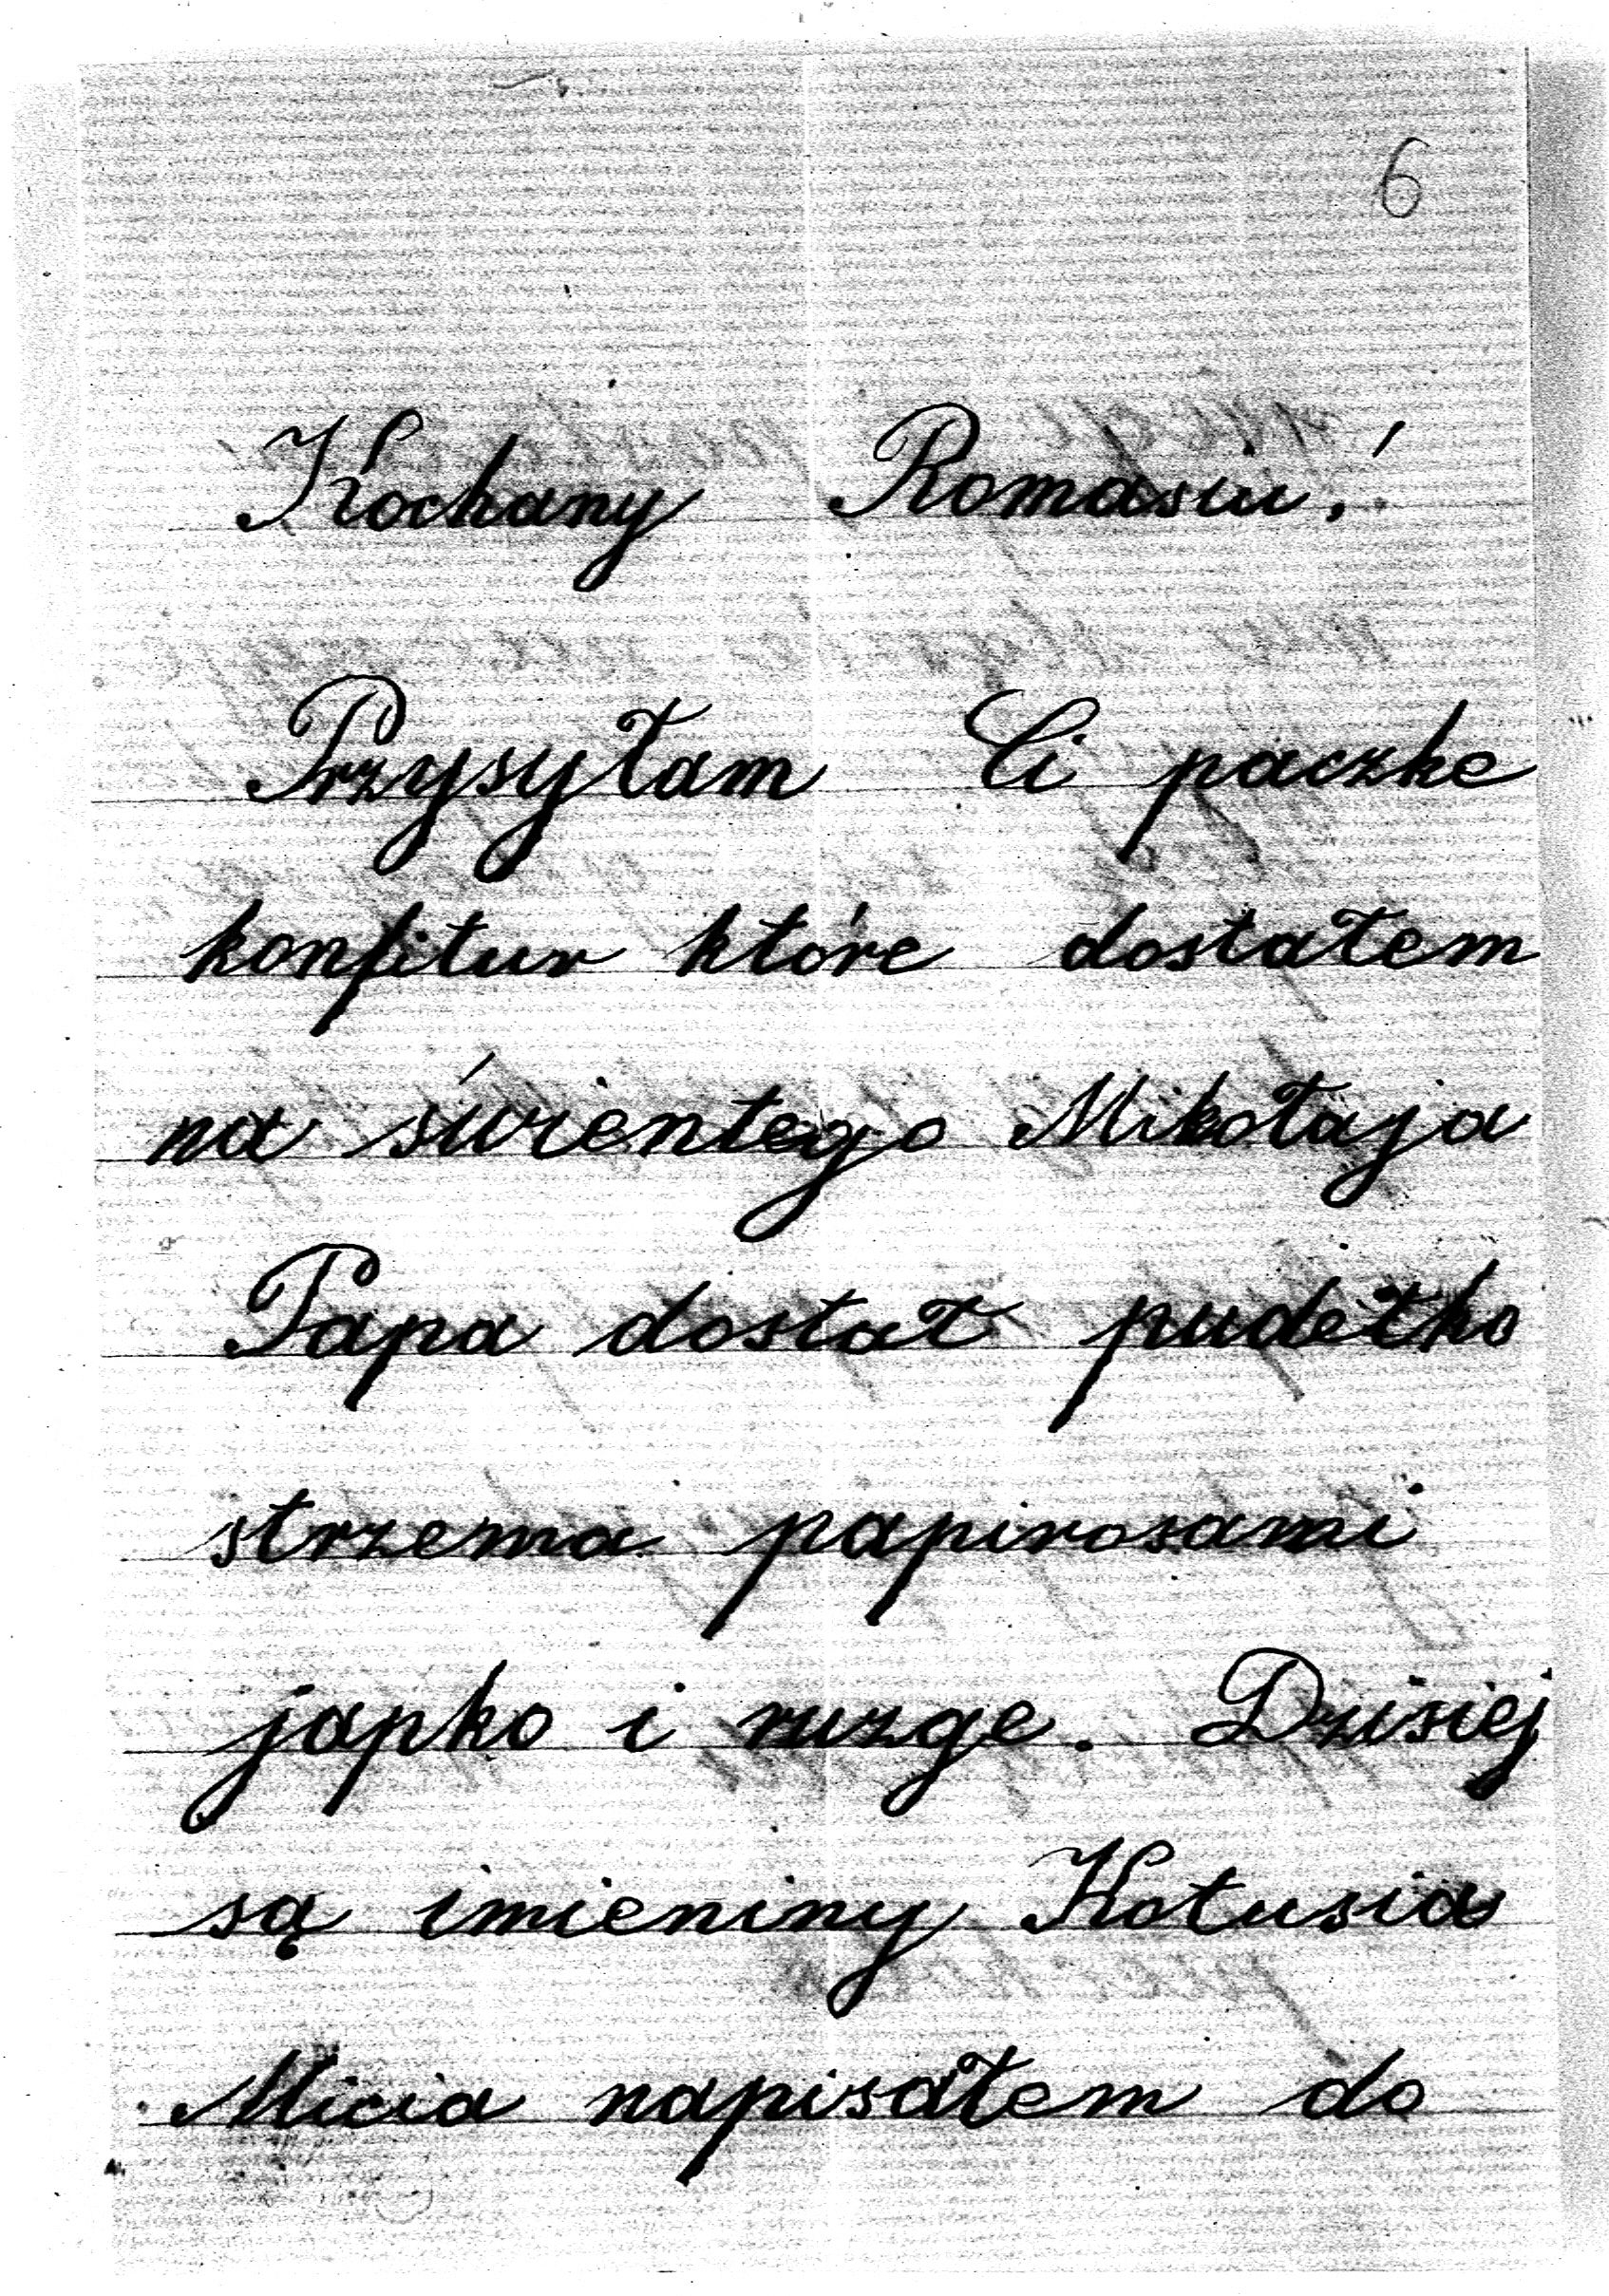 6
Kochany Romasiu!
Przysyłam Ci paczke
konfitur które dostałem
na świentego Mikołaja
Papa dostał pudełko
strzema papirosami
japko i ruzge. Dzisiej
są imieniny Kotusia
Micia napisałem do